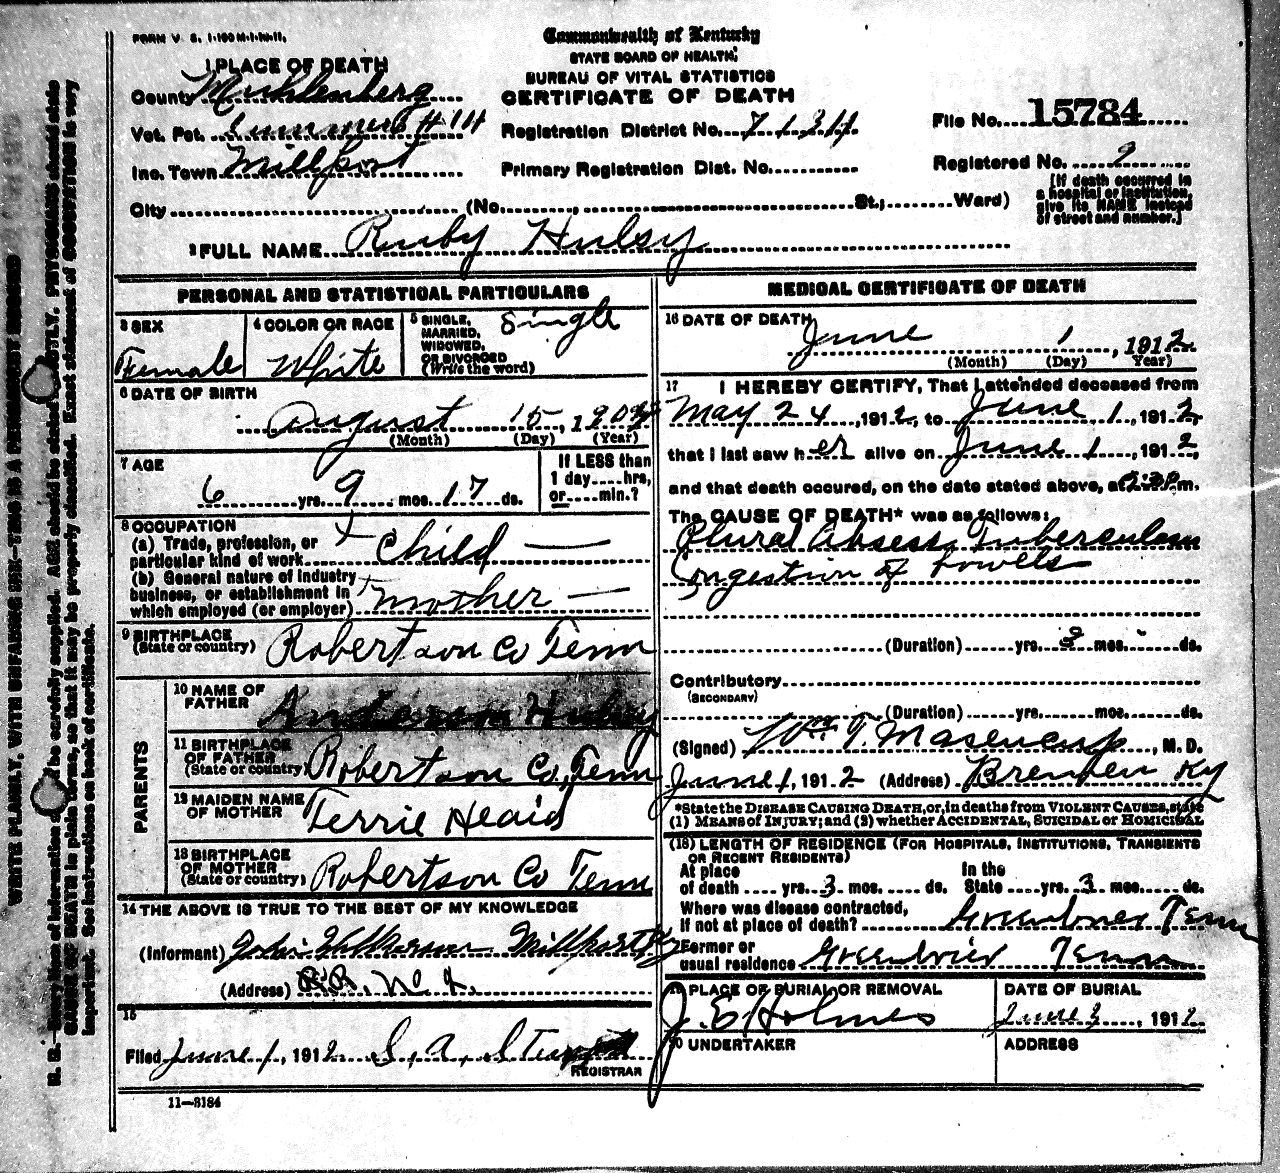 FORM V. S. 1-100 M-1-IV-11.
Commonwealth of Kentucky
STATE BOARD OF HEALTH.
BUREAU OF VITAL STATISTICS
CERTIFICATE OF DEATH
1 PLACE OF DEATH
County Muhlenberg
Vot. Pct. #14
Inc. Town Millport
Registration District No. 7131
Primary Registration Dist. No.
File No. 15784
Registered No. 2
[If death occurred in a hospital or institution, give its NAME instead of street and number.]
City (No. , St.; Ward)
2 FULL NAME Ruby Hulsy
PERSONAL AND STATISTICAL PARTICULARS
3 SEX
Female
4 COLOR OR RACE
White
5 SINGLE, MARRIED, WIDOWED, OR DIVORCED (Write the word)
Single
6 DATE OF BIRTH
August 15, 190
(Month) (Day) (Year)
7 AGE
6 yrs. 9 mos. 17 ds.
If LESS than 1 day hrs, or min.?
8 OCCUPATION
(a) Trade, profession, or particular kind of work Child
(b) General nature of Industry business, or establishment in which employed (or employer) mother
9 BIRTHPLACE
(State or country) Robertson Co Tenn
PARENTS
10 NAME OF FATHER Anderson Hulsy
11 BIRTHPLACE OF FATHER (State or country) Robertson Co, Tenn
12 MAIDEN NAME OF MOTHER Terrie Heaid
13 BIRTHPLACE OF MOTHER (State or country) Robertson Co Tenn
14 THE ABOVE IS TRUE TO THE BEST OF MY KNOWLEDGE
(Informant) John Wilkerson Millport Ky
(Address) RR. No 1.
15
Filed June 1, 1912 S. A.
REGISTRAR
11—3184
MEDICAL CERTIFICATE OF DEATH
16 DATE OF DEATH
June 1, 1912
(Month) (Day) (Year)
17 I HEREBY CERTIFY, That I attended deceased from
May 24, 1912, to June 1, 1912,
that I last saw her alive on June 1, 1912,
and that death occured, on the date stated above, at m.
The CAUSE OF DEATH* was as follows:
Plural Absess, Tuberculam
Congestion of bowels
(Duration) yrs. 3 mos. ds.
Contributory
(SECONDARY)
(Duration) yrs. mos. ds.
(Signed) Wm T. Masencup, M. D.
June 1, 1912 (Address) Bremen Ky
*State the DISEASE CAUSING DEATH, or, in deaths from VIOLENT CAUSES, state
(1) MEANS of INJURY; and (2) whether ACCIDENTAL, SUICIDAL or HOMICIDAL
(18) LENGTH OF RESIDENCE (FOR HOSPITALS, INSTITUTIONS, TRANSIENTS OR RECENT RESIDENTS)
At place of death yrs. 3 mos. ds. In the State yrs. 3 mos. ds.
Where was disease contracted, If not at place of death? Tenn
Former or usual residence Greenbrier Tenn
19 PLACE OF BURIAL OR REMOVAL
J. E. Holmes
DATE OF BURIAL
June 3, 1912
20 UNDERTAKER
ADDRESS
WRITE PLAINLY, WITH UNFADING INK—THIS IS A PERMANENT RECORD
N. B.—Every item of information should be carefully supplied. AGE should be stated EXACTLY. PHYSICIANS should state
CAUSE OF DEATH in plain terms, so that it may be properly classified. Exact statement of OCCUPATION is very
important. See instructions on back of certificate.